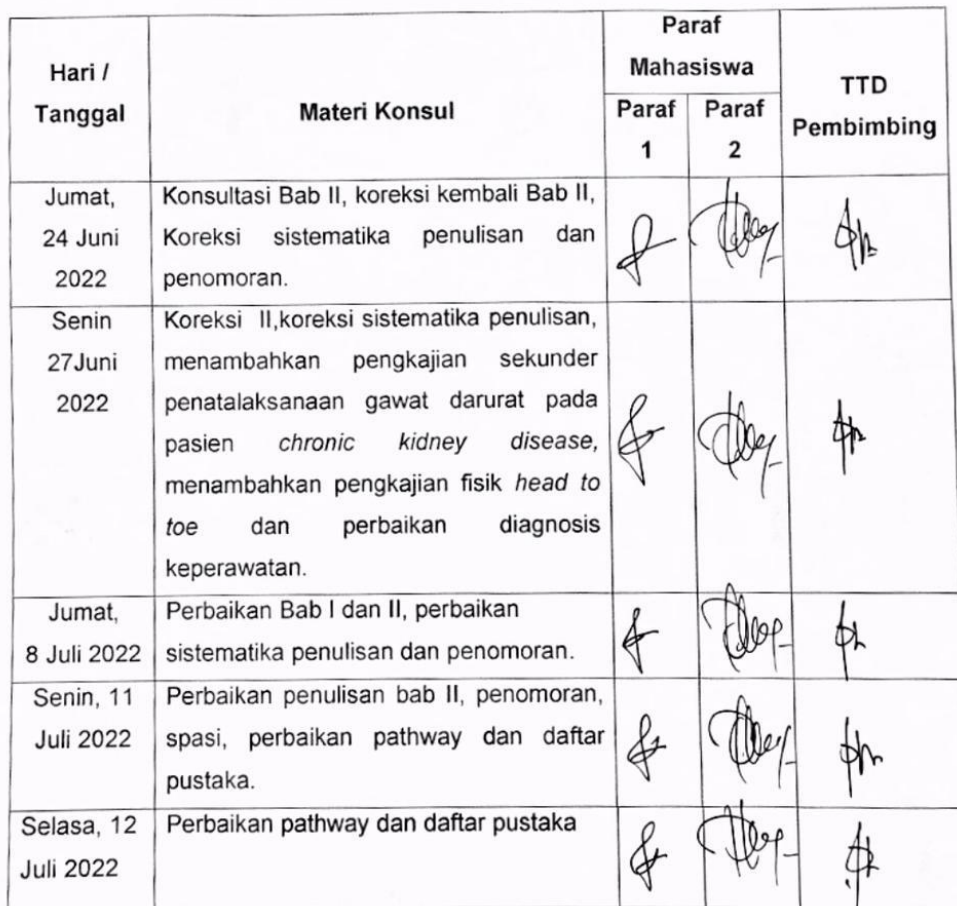 Hari /
Tanggal
Materi Konsul
Paraf
Mahasiswa
Paraf
1
Paraf
2
TTD
Pembimbing
Jumat,
24 Juni
2022
Konsultasi Bab II, koreksi kembali Bab II,
Koreksi sistematika penulisan dan
penomoran.
Senin
27Juni
2022
Koreksi II,koreksi sistematika penulisan,
menambahkan pengkajian sekunder
penatalaksanaan gawat darurat pada
pasien chronic kidney disease,
menambahkan pengkajian fisik head to
toe dan perbaikan diagnosis
keperawatan.
Jumat,
8 Juli 2022
Perbaikan Bab I dan II, perbaikan
sistematika penulisan dan penomoran.
Senin, 11
Juli 2022
Perbaikan penulisan bab II, penomoran,
spasi, perbaikan pathway dan daftar
pustaka.
Selasa, 12
Juli 2022
Perbaikan pathway dan daftar pustaka